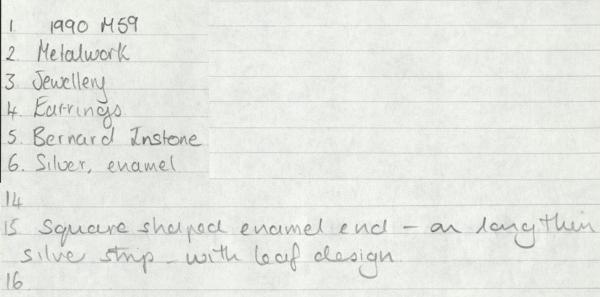 1. 1990 M59
2. Metalwork
3. Jewellery
4. Earrings
5. Bernard Instone
6. Silver, enamel
14
15 Square shaped enamel end - on long thin
silver strip - with leaf design
16